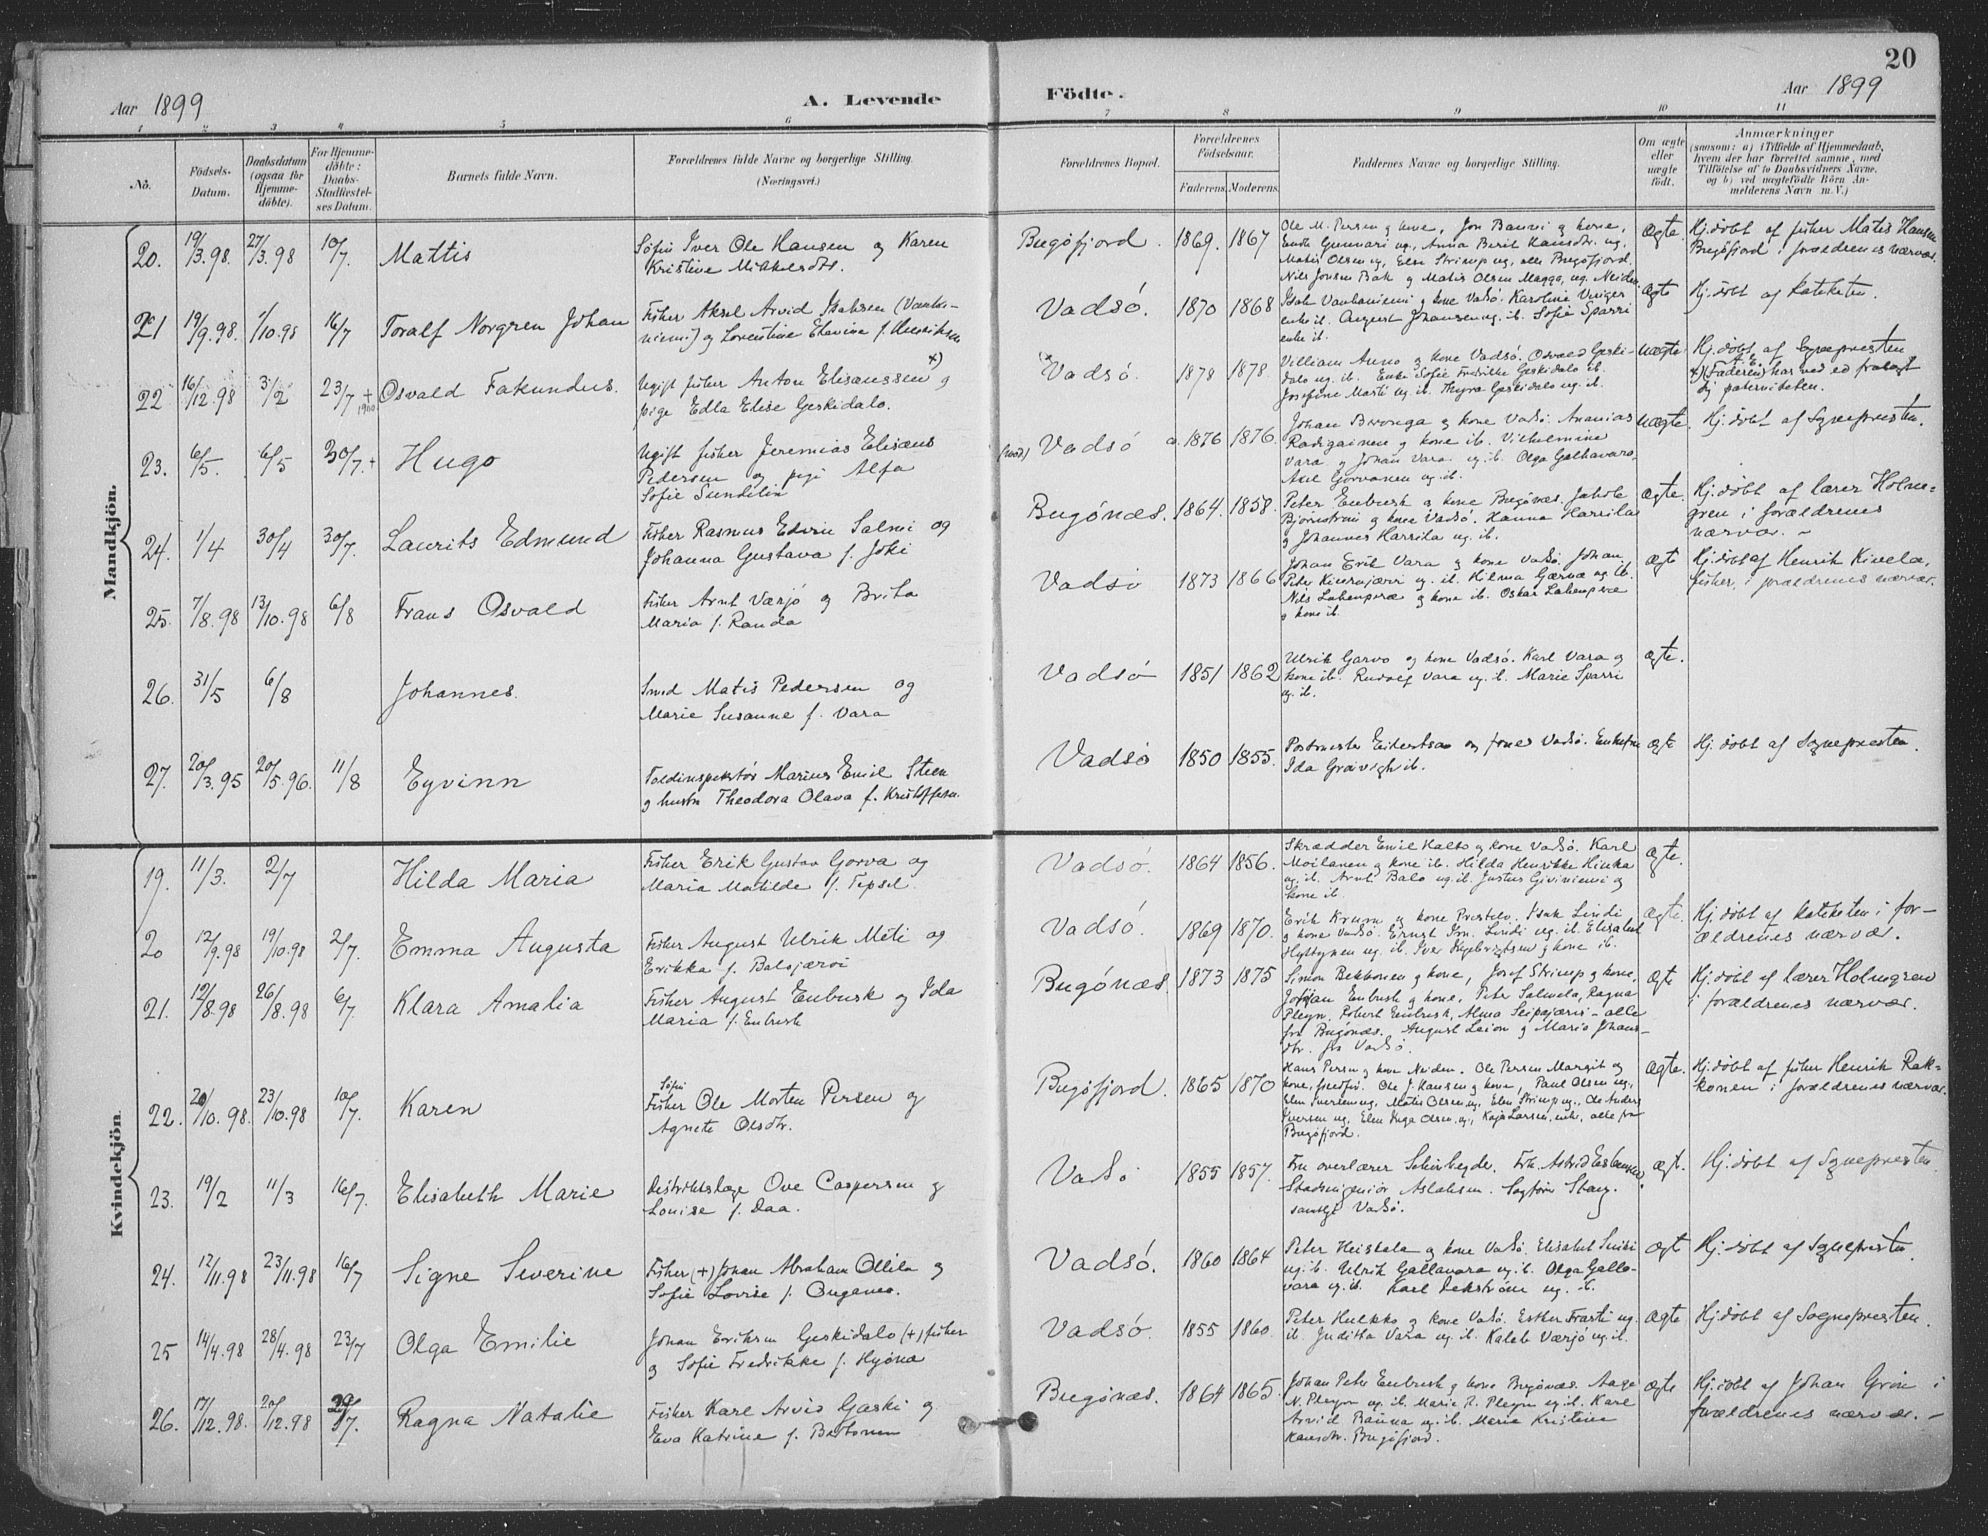 20
Aar 1899
A. Levende
Födte.
Aar 1899
1 2 3 4 5 6 7 8 9 10 11
No.
Födsels-
Datum.
Daabsdatum
(ogsaa for
Hjemme-
döbte).
For Hjemme-
döbte:
Daabs-
Stadfæstel-
ses Datum.
Barnets fulde Navn.
Forældrenes fulde Navne og borgerlige Stilling.
(Næringsvei.)
Forældrenes Bopæl.
Forældrenes
Födselsaar.
Faderens. Moderens.
Faddernes Navne og borgerlige Stilling.
Om ægte
eller
uægte
födt.
Anmærkninger
(saasom: a) i Tilfælde af Hjemmedaab,
hvem der har forrettet samme, med
Tilföielse af to Daabsvidners Navne,
og b) ved uægtefödte Börn An-
melderens Navn m. V.)
Mandkjön.
20. 19/3.98. 27/3.98 10/7. Mattis
Søfin Iver Ole Hansen og Karen
Kristine Mikkelsdtr.
Bugøfjord. 1869. 1867
Ole M. Persen g kone, Jon Banni g kone,
Matis Olsen ug, Else Strimp ug, alle Bugøfjord.
Nils Jonsen Bak g Matis Olsen Magga, ug. Neiden
ægte
Hj. døbt af fisher Matis Hansen
Bugøfjord i forældrenes nærvær.
21 19/9.98. 1/10.98 16/7 Toralf Norgren Johan
Fisher Aksel Arvid Isaksen (Vanha-
niemi) og Lorentine Elevine f. Henriksen
Vadsö. 1870 1868
Isak Vanhaniemi g kone Vadsö. Karoline
enke ib. August Johansen ug. ib. Sofie Sparri
enke ib.
ægte
Hj. döbt af kateketen.
22 16/12.98 3/2 23/7 + 1900 Osvald Fakundus.
Ugift fisher Anton Elisæussen +) g
pige Edla Elise Geskidalo.
+ Vadsö. 1878 1878.
William Anno g kone Vadsö. Osvald Geski-
dalo ug. ib. Enke Sofie Fredrikke Geskidalo ib.
Josefine Marti ug. ib. Thyra Geskidalo ug. ib.
uægte
Hj. döbt af Sognepresten
+) (Faderen) har ved ed fralagt
sig paterniteten.
23. 6/5. 6/5 30/7. + Hugo
Ugift fisher Jeremias Elisæus
Pedersen og pige Alfa
Sofie Sundelin
Vadsö a. 1876 1876.
Johan Bwonga g kone Vadsö. Ananias
Radigainen g kone ib. Vilhelmine
Vara g Johan Vara ug. ib. Olga Gallavara,
Axel Gorvanen ug. ib.
uægte
Hj. döbt af Sognepresten.
24. 1/4 30/4 30/7. Laurits Edmund
Fisher Rasmus Edvin Salmi og
Johanna Gustava f. Joki
Bugönæs. 1864. 1858.
Peter Enbusk g kone Bugönæs. Jakob
Bjørnstrøm g kone Vadsö. Hanna Harrila
g Johannes Harrila ug. ib.
ægte.
Hj. döbt af lærer Holm-
gren i forældrenes
nærvær. –
25. 7/8.98 13/10.98 6/8 Frans Osvald
Fisher Arnt Værjö g Brita
Maria f. Randa
Vadsö 1873 1866
Johan Erik Vara g kone Vadsö. Johan
Nils Lahenperæ g kone ib. Oskar Lahenperæ
g kone ib.
ægte
Hj. döbt af Henrik Kivelæ,
fisher, i forældrenes nærvær.
26. 31/5 6/8 Johannes.
Smed Matis Pedersen og
Marie Susanne f. Vara
Vadsö 1851 1862
Ulrik Garvo g kone Vadsö. Karl Vara g
kone ib. Rudolf Vara ug. ib. Marie Sparri
ug. ib.
ægte.
27. 20/3.95 20/5.96. 11/8 Eyvinn
Toldinspektör Marius Emil Steen
g hustru Theodora Olava f. Kristoffersen.
Vadsö 1850 1855.
Postmester Eidertsen og frue Vadsö. Enkefru
Ida ib.
ægte
Hj. döbt af Sognepresten.
Kvindekjön.
19. 11/3. 2/7 Hilda Maria
Fisher Erik Gustav Gorva og
Maria Matilde f. Tepsel.
Vadsö. 1864 1856.
Skrædder Emil Hallo g kone Vadsö. Karl
Moilanen g kone ib. Hilda Henrikke Hinka
ug. ib. Arnt Balo ug. ib. Justus Giviniemi g
kone ib.
ægte.
20 12/9.98 19/10.98 2/7. Emma Augusta
Fisher August Ulrik Meti og
Erikka f. Balojærvi
Vadsö. 1869 1870.
Erik Krum g kone Prestelv. Isak Lindi
g kone Vadsö. Ernst Im. Lindi ug. ib. Elisabet
Hyltynen ug. ib. Iver g kone ib.
ægte.
Hj. döbt af kateketen i for-
ældrenes nærvær.
21. 12/8.98 26/8.98 6/7. Klara Amalia
Fisher August Enbusk og Ida
Maria f. Enbusk
Bugönæs. 1873 1875
Simon Bekkonen g kone, Josef Strimp g kone,
Johan Enbusk g kone, Peter Salmela, Ragna
Pleym, Robert Enbusk, Alma Seipajærvi – alle
fra Bugönæs. August Leion g Maria Johans-
dtr. fra Vadsö.
ægte
Hj. döbt af lærer Holmgren
i forældrenes nærvær.
22. 20/10.98. 23/10.98 10/7. Karen
Søfin
Fisher Ole Morten Persen og
Agnete Olsdtr.
Bugöfjord. 1865 1870
Hans Persen g kone Neiden. Ole Persen Margit og
kone, Ole J. Hansen g kone, Paul Olsen ug.,
Elen Iversen ug, Matis Olsen ug, Elen Strimp ug., Ole Anders
Iversen ug, Elen Inga Olsen, ug, Kaja Larsen, enke, alle fra
Bugöfjord.
ægte.
Hj. döbt af fisher Henrik Rak-
konen i forældrenes nærvær.
23. 19/2 11/3 16/7. Elisabeth Marie
Distriktslæge Ove Caspersen g
Louise f. Daa.
Vadsö 1855 1857.
Fru overlærer Frk. Astrid Esbensen,
Stadsingeniör Aslaksen. Sagförer Stang.
samtlige Vadsö.
ægt.
Hj. döbt af Sognepresten.
24. 12/11.98 23/11.98 16/7 Signe Severine
Fisher (+) Johan Abraham Ollila g
Sofie Lovise f. Onganes.
Vadsö. 1860 1864
Peter Heiskala g kone Vadsö. Elisabet Suiki
ug. ib. Ulrik Gallavara ug. ib. Olga Galla-
vara ug. ib. Karl Dekström ug. ib.
ægt
Hj. döbt af Sognepresten.
25 14/4.98 28/4.98 23/7 Olga Emilie
Johan Eriksen Geskidalo (+) fisher
g Sofie Fredrikke f. Hyönæ
Vadsö. 1855 1860.
Peter Hulkko g kone Vadsö. Esther Frasti ug.
ib. Juditha Vara ug. ib. Kaleb Værjö ug. ib.
ægte
Hj. döbt af Sognepresten.
26. 17/12.98. 20/12.98 29/7. Ragna Natalie
Fisher Karl Arvid Gaski g
Eva Katrine f. Bertonen
Bugönæs. 1864 1865.
Johan Peter Enbusk g kone Bugönæs. Aage
N. Pleym ug. ib. Marie P. Pleym ug. ib. Karl
Arvid Banna ug. ib. Maria Kristine
Hansdtr. Bugöfjord.
ægte
Hj. döbt af Johan Grön i
forældrenes nærvær. –